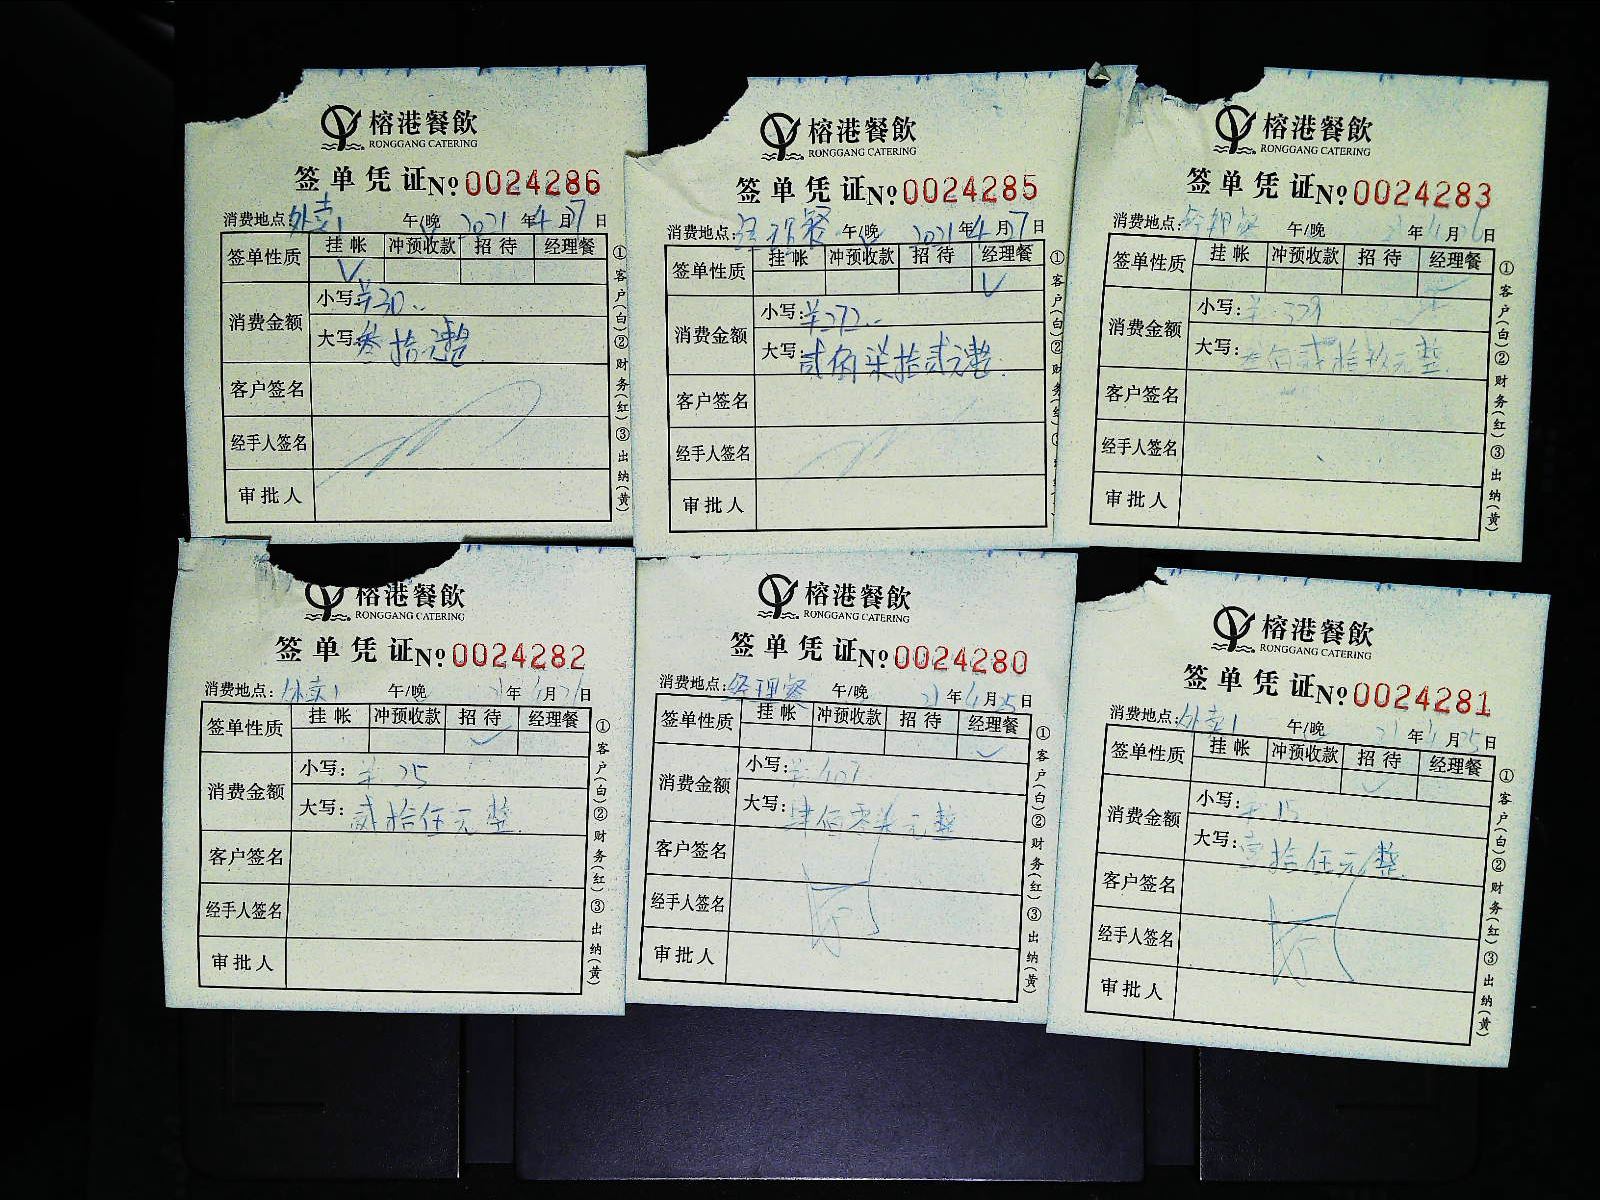 榕港餐飲
RONGGANG CATERING
签单凭证№0024286
消费地点:外卖1 午/晚 2021年4月27日
签单性质 挂帐 冲预收款 招待 经理餐
√
消费金额 小写:¥30..
大写:叁拾元整
客户签名
经手人签名
审批人
①客户(白)②财务(红)③出纳(黄)
榕港餐飲
RONGGANG CATERING
签单凭证№0024285
消费地点:经理餐 午/晚 2021年4月27日
签单性质 挂帐 冲预收款 招待 经理餐
√
消费金额 小写:¥272..
大写:贰佰柒拾贰元整.
客户签名
经手人签名
审批人
①客户(白)②财务(红)
榕港餐飲
RONGGANG CATERING
签单凭证№0024283
消费地点:经理餐 午/晚 21年4月26日
签单性质 挂帐 冲预收款 招待 经理餐
消费金额 小写:¥329
大写:叁佰贰拾玖元整.
客户签名
经手人签名
审批人
①客户(白)②财务(红)③出纳(黄)
榕港餐飲
RONGGANG CATERING
签单凭证№0024282
消费地点:外卖1 午/晚 21年4月26日
签单性质 挂帐 冲预收款 招待 经理餐
√
消费金额 小写:¥25
大写:贰拾伍元整.
客户签名
经手人签名
审批人
①客户(白)②财务(红)③出纳(黄)
榕港餐飲
RONGGANG CATERING
签单凭证№0024280
消费地点:经理餐 午/晚 21年4月25日
签单性质 挂帐 冲预收款 招待 经理餐
√
消费金额 小写:¥407.
大写:肆佰零柒元整
客户签名
经手人签名
审批人
①客户(白)②财务(红)③出纳(黄)
榕港餐飲
RONGGANG CATERING
签单凭证№0024281
消费地点:外卖1 午/晚 21年4月25日
签单性质 挂帐 冲预收款 招待 经理餐
√
消费金额 小写:¥15
大写:壹拾伍元整.
客户签名
经手人签名
审批人
①客户(白)②财务(红)③出纳(黄)